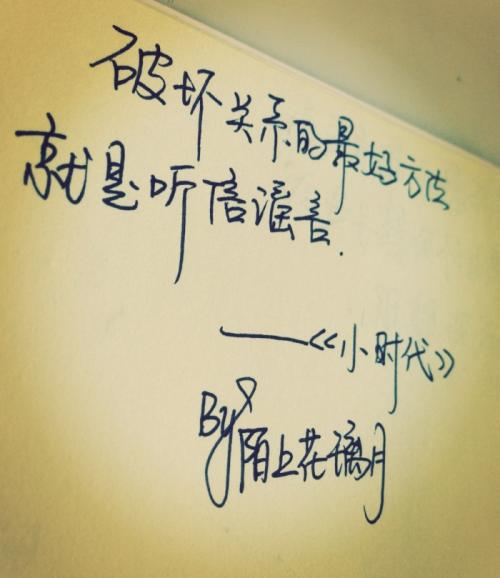 破坏关系的最好方法
就是听信谣言.
——《小时代》
By 陌上花璃月